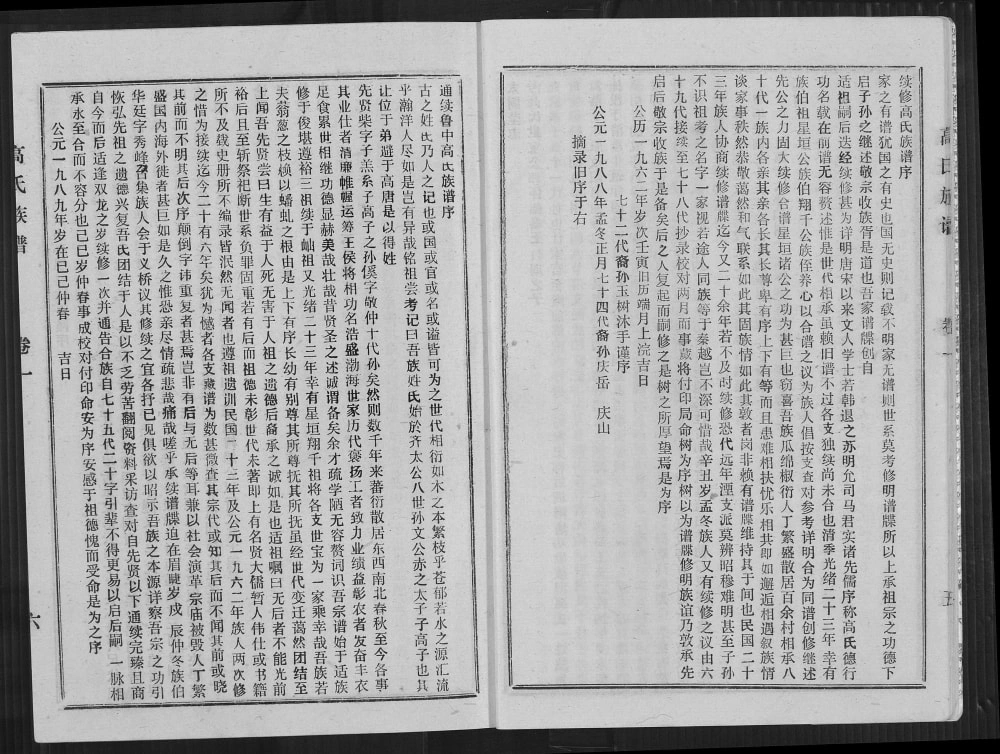 续修高氏族谱序
家之有谱犹国之有史也国无史则记载不明家无谱则世系莫考修明谱牒所以上承祖宗之功德下
启子孙之继述敬宗收族胥是道也吾家谱牒创自
适祖嗣后迭经续修甚为详明唐宋以来文人学士若韩退之苏明允司马君实诸先儒序称高氏德行
功名载在前谱无容赘述惟是世代相承虽赖旧谱不过各支独续尚未合也清季光绪二十三年幸有
族伯祖星垣公族伯翔千公族侄养心以合谱之议为族人倡按支查对参考详明合为同谱创修继述
先公之力固大续修合谱星垣诸公之功为甚巨也窃喜吾族瓜绵椒衍人丁繁盛散居百余村相承八
十代一族内各亲其亲各长其长尊卑有序上下有等而且患难相扶忧乐相共即如邂逅相遇叙族情
谈家事秩然恭敬蔼然和气联系如此其固族情如此其敦者岗非赖有谱牒维持其于间也民国二十
三年族人协商续修谱牒迄今又二十余年若不及时续修恐代远年湮支派莫辨昭穆难明甚至子孙
不识祖考之名字一家视若途人同族等于秦越岂不深可惜哉辛丑岁孟冬族人又有续修之议由六
十九代接续至七十八代抄录校对两月而事蒇将付印局命树为序树以为谱牒修明族谊乃敦承先
启后敬宗收族于是备矣后之人复起而嗣修之是树之所厚望焉是为序
七十二代裔孙玉树沐手谨序
公历一九六二年岁次壬寅旧历端月上浣吉日
公元一九八八年孟冬正月七十四代裔孙庆岳 庆山
摘录旧序于右
高氏族谱 卷一 五
通续鲁中高氏族谱序
古之姓氏乃人之记也或国或官或名或谥皆可为之世代相衍如木之本繁枝乎苍郁若水之源汇流
乎瀚洋人尽如是岂有异哉铭祖尝考记曰吾族姓氏始於齐太公八世孙文公赤之太子子高子也其
让位于弟避于高唐是以得姓
先贤柴字子羔系子高子之孙傒字敬仲十代孙矣然则数千年来蕃衍散居东西南北春秋至今各事
其业仕者清廉帷幄运筹王侯将相功名浩盛渤海世家历代褒扬工者致力业绩益彰农者友奋丰衣
足食累世相继功德显赫美哉壮哉昔贤圣之述诚谓备矣余才疏学陋无容赘词识吾宗谱始于适族
修于俊堪遵裕三祖续于屾祖又光绪二十三年幸有星垣翔千祖将各支世宝为一家乘幸哉吾族若
夫蓊葱之枝颇以蟠虬之根由是上下有序长幼有别尊其所尊抚其所抚虽经世代变迁蔼然团结至
上闻吾先贤尝曰生有益于人死无害于人祖之遗德后裔承之诚如是也适祖嘱曰无后者不能光前
裕后且至斩祭祀断世系负罪固重若有后而祖德未彰世代未著即上有名贤大儒暂人伟仕或书籍
所不及载史册所不编录皆泯然无闻者也遵祖遗训民国二十三年及公元一九六二年族人两次修
之惜为接续迄今二十有六年矣犹为憾者各支藏谱为数甚微查其宗代或知其后而不闻其前或晓
其前而不明其后次序颠倒字讳重复者甚焉岂非有后与无后等耳兼以社会演革宗庙被毁人丁繁
盛国内海外徙者甚巨如是久之惟恐亲尽情疏悲哉痛哉嗟乎承续谱牒迫在眉睫岁戌辰仲冬族伯
华廷字秀峰召集族人会于义桥议其修续之宜各抒已见俱欲以昭示吾族之本源详察吾宗之功引
恢弘先祖之遗德兴复吾氏团结于人是以不乏劳苦翻阅资料采访查对自先贤以下通续完臻且商
自今而后适逢双龙之岁续修一次并通告合族自七十五代二十字引辈不得更易以启后嗣一脉相
承永至合而不容分也己巳岁仲春事成校对付印命安为序安感于祖德愧而受命是为之序
公元一九八九年岁在已己仲春 吉日
高氏族谱 卷一 六